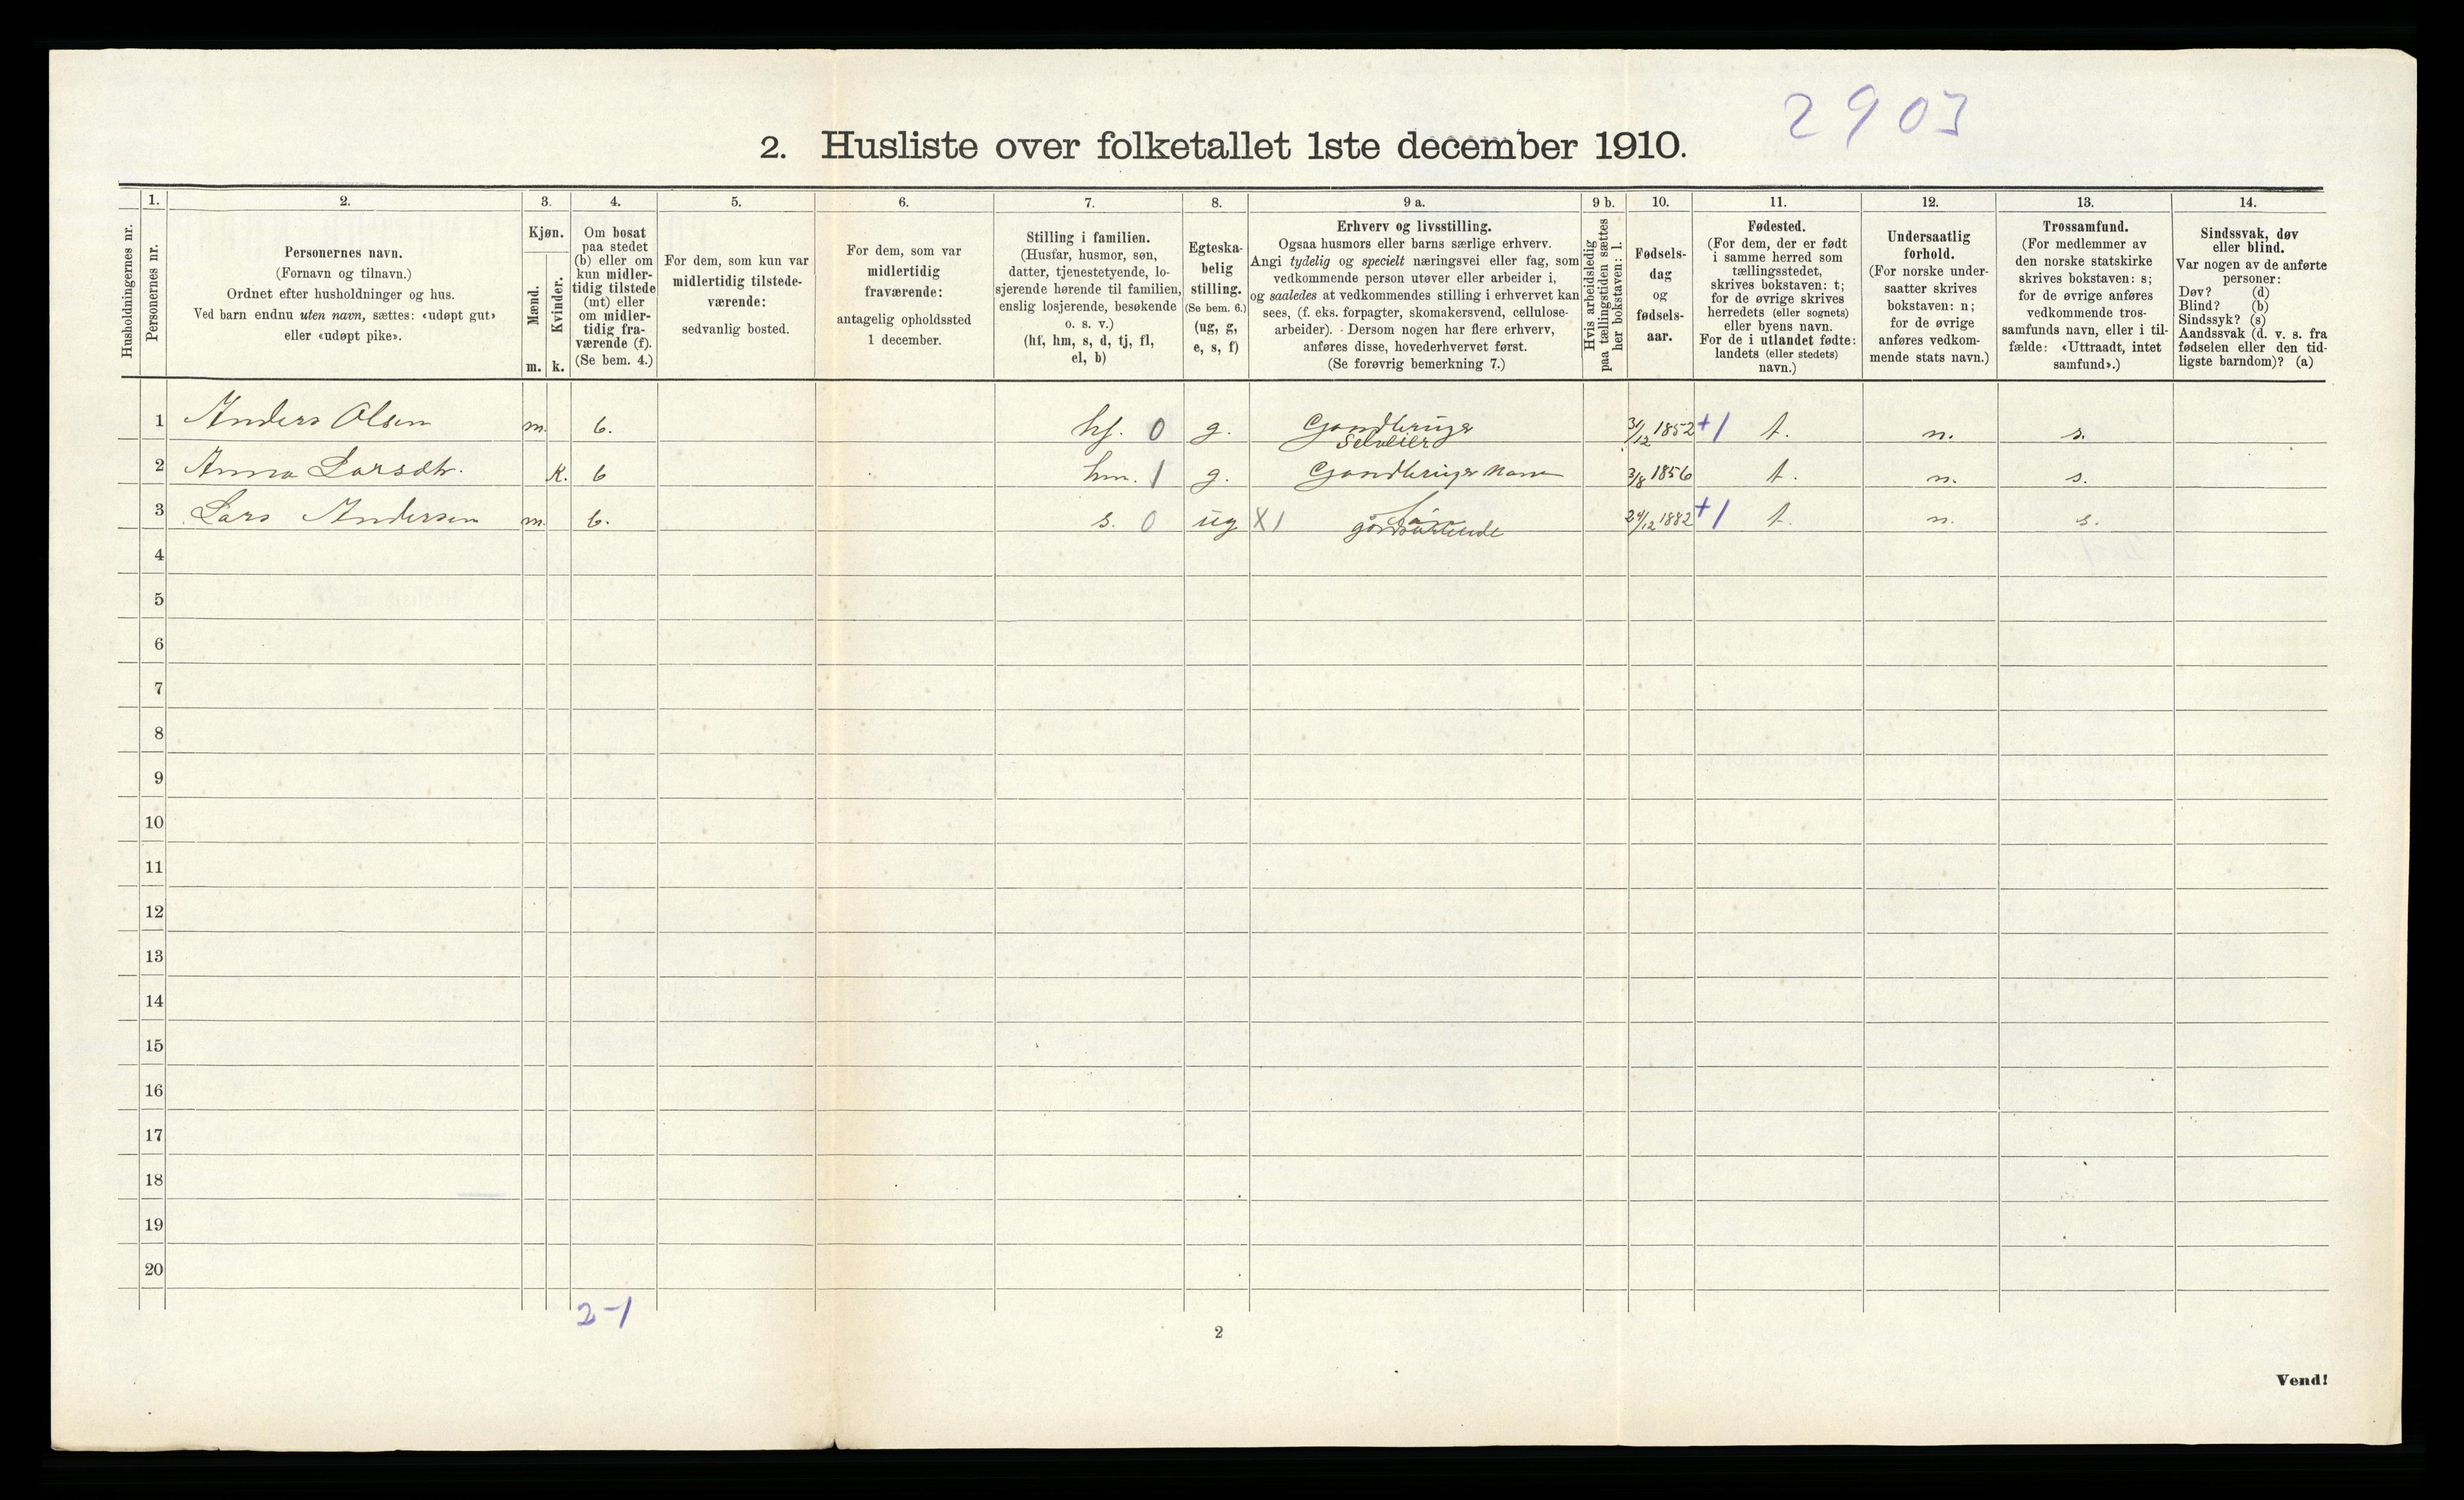 2903
2. Husliste over folketallet 1ste december 1910.
Husholdningernes nr.
1.
Personernes nr.
2.
Personernes navn.
(Fornavn og tilnavn.)
Ordnet efter husholdninger og hus.
Ved barn endnu uten navn, sættes: «udøpt gut»
eller «udøpt pike».
3.
Kjøn.
Mænd.
m.
Kvinder.
k.
4.
Om bosat
paa stedet
(b) eller om
kun midler-
tidig tilstede
(mt) eller
om midler-
tidig fra-
værende (f).
(Se bem. 4.)
5.
For dem, som kun var
midlertidig tilstede-
værende:
sedvanlig bosted.
6.
For dem, som var
midlertidig
fraværende:
antagelig opholdssted
1 december.
7.
Stilling i familien.
(Husfar, husmor, søn,
datter, tjenestetyende, lo-
sjerende hørende til familien,
enslig losjerende, besøkende
o. s. v.)
(hf, hm, s, d, tj, fl,
el, b)
8.
Egteska-
belig
stilling.
(Se bem. 6.)
(ug, g,
e, s, f)
9 a.
Erhverv og livsstilling.
Ogsaa husmors eller barns særlige erhverv.
Angi tydelig og specielt næringsvei eller fag, som
vedkommende person utøver eller arbeider i,
og saaledes at vedkommendes stilling i erhvervet kan
sees, (f. eks. forpagter, skomakersvend, cellulose-
arbeider). Dersom nogen har flere erhverv,
anføres disse, hovederhvervet først.
(Se forøvrig bemerkning 7.)
9 b.
Hvis arbeidsledig
paa tællingstiden sættes
her bokstaven: l.
10.
Fødsels-
dag
og
fødsels-
aar.
11.
Fødested.
(For dem, der er født
i samme herred som
tællingsstedet,
skrives bokstaven: t;
for de øvrige skrives
herredets (eller sognets)
eller byens navn.
For de i utlandet fødte:
landets (eller stedets)
navn.)
12.
Undersaatlig
forhold.
(For norske under-
saatter skrives
bokstaven: n;
for de øvrige
anføres vedkom-
mende stats navn.)
13.
Trossamfund.
(For medlemmer av
den norske statskirke
skrives bokstaven: s;
for de øvrige anføres
vedkommende tros-
samfunds navn, eller i til-
fælde: «Uttraadt, intet
samfund».)
14.
Sindssvak, døv
eller blind.
Var nogen av de anførte
personer:
Døv? (d)
Blind? (b)
Sindssyk? (s)
Aandssvak (d. v. s. fra
fødselen eller den tid-
ligste barndom)? (a)
1 Anders Olsen m. b. hf. 0 g. Gaardbruger 31/12 1852 +1 t. n. s.
Selveier
2 Anna Larsdtr. K. b hm. 1 g. Gaardbruger Kone 3/8 1856 t. n. s.
3 Lars Andersen m. b. s. 0 ug X1 Søn 24/12 1882 +1 t. n. s.
4
5
6
7
8
9
10
11
12
13
14
15
16
17
18
19
20
2-1
2
Vend!